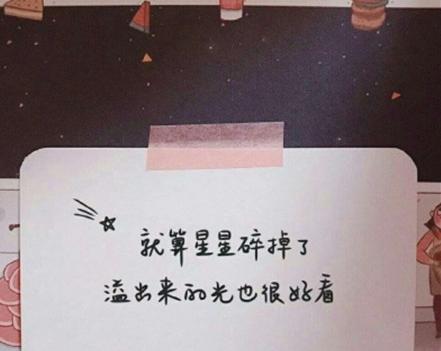 就算星星碎掉了
溢出来的光也很好看